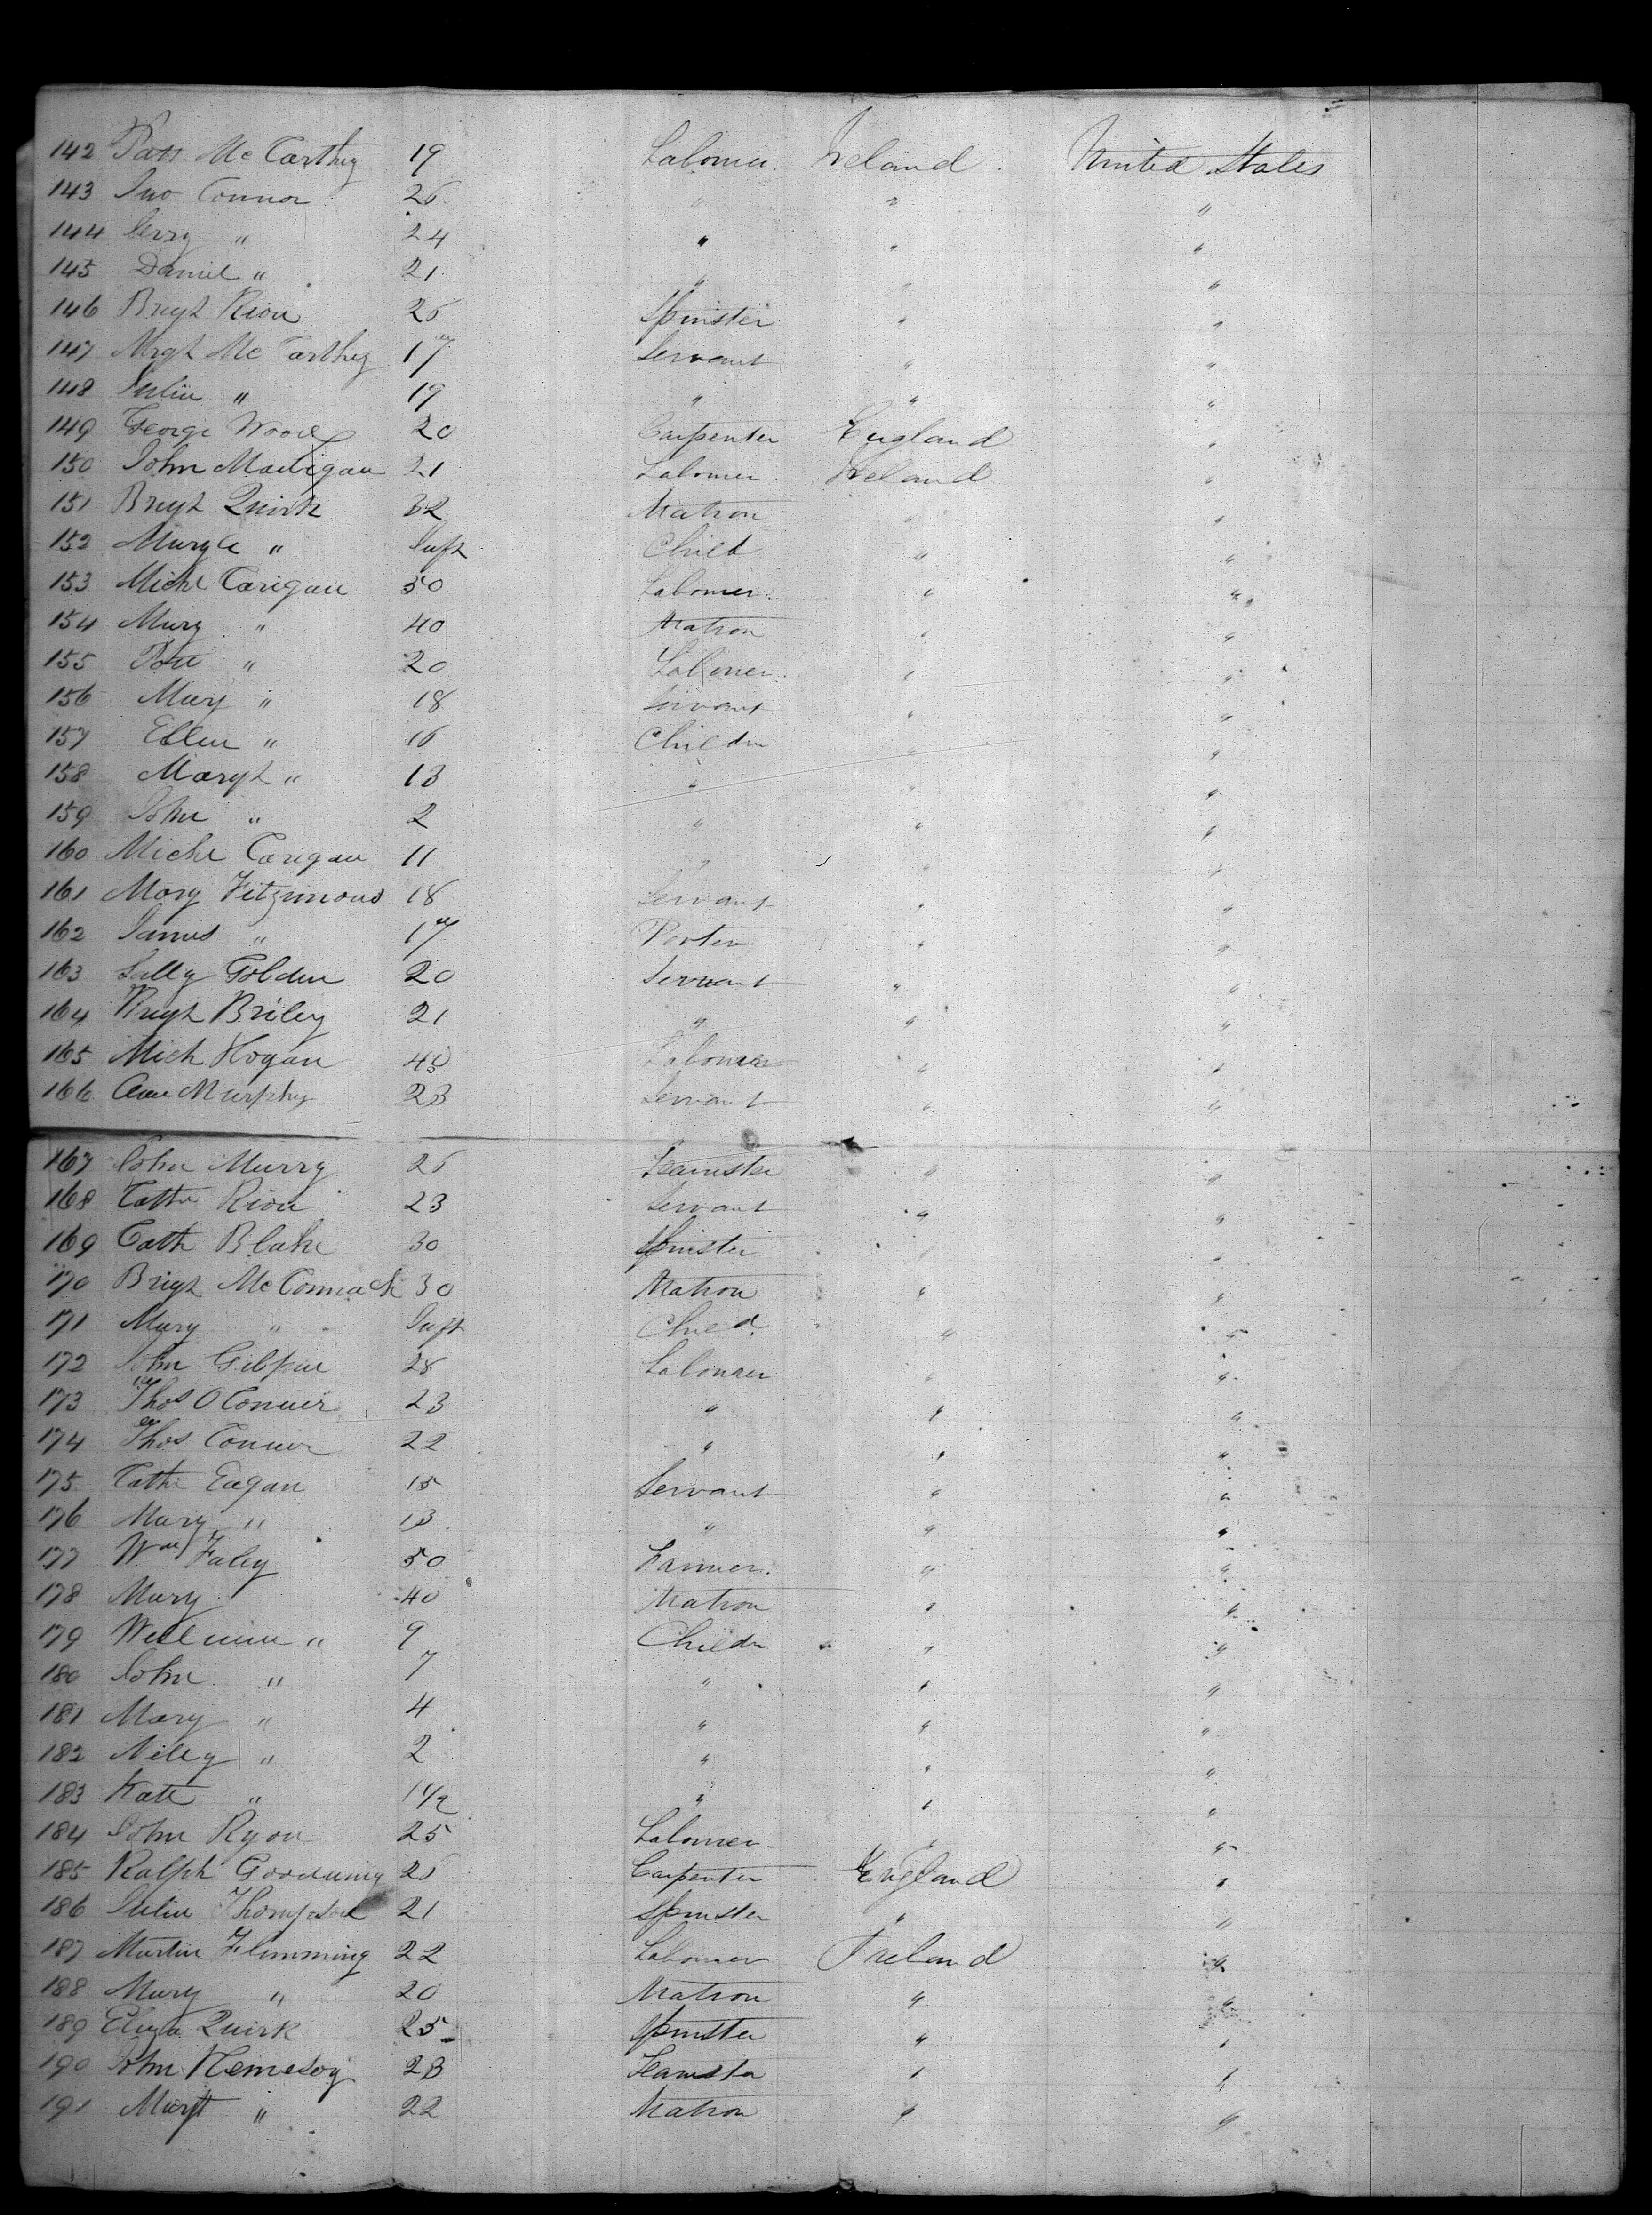 142 Patt McCarthy 19 Labourer. Ireland. United States
143 Jno Connor 26 " " "
144 Jerry " 24 " " "
145 Daniel " 21 " " "
146 Brigt Rion 26 Spinster " "
147 Mrgt McCarthy 17 Servant " "
148 Julia " 19 " " "
149 George Wood 20 Carpenter England "
150 John Madigan 21 Labourer. Ireland "
151 Brigt Quirk 32 Matron " "
152 Margt " Inft Child " "
153 Michl Carigan 50 Labourer. " "
154 Mary " 40 Matron " "
155 Patt " 20 Labourer. " "
156 Mary " 18 Servant " "
157 Ellen " 16 Childn " "
158 Margt " 13 " " "
159 John " 2 " " "
160 Michl Carigan 11 " " "
161 Mary Fitzimons 18 Servant " "
162 James " 17 Porter " "
163 Sally Golden 20 Servant " "
164 Brigt Briley 21 " " "
165 Mich Hogan 45 Labourer " "
166 Ann Murphy 23 Servant " "
167 John Murry 26 Teamster " "
168 Cath Rion 23 Servant " "
169 Cath Blake 30 Spinster " "
170 Brigt McConnack 30 Matron " "
171 Mary " Inft Child " "
172 John Gilpin 28 Labourer " "
173 Thos O Conner 23 " " "
174 Thos Connor 22 " " "
175 Cath Eagan 15 Servant " "
176 Mary " 13 " " "
177 Wm Faley 50 Farmer. " "
178 Mary 40 Matron " "
179 William " 9 Childn " "
180 John " 7 " " "
181 Mary " 4 " " "
182 Nelly " 2 " " "
183 Kate " 1 1/2 " " "
184 John Ryon 25 Labourer " "
185 Ralph Gooduing 26 Carpenter England "
186 Julia Thompson 21 Spinster " "
187 Martin Flimming 22 Labourer Ireland "
188 Mary " 20 Matron " "
189 Eliza Quirk 25 Spinster " "
190 John 23 Teamster " "
191 Margt " 22 Matron " "